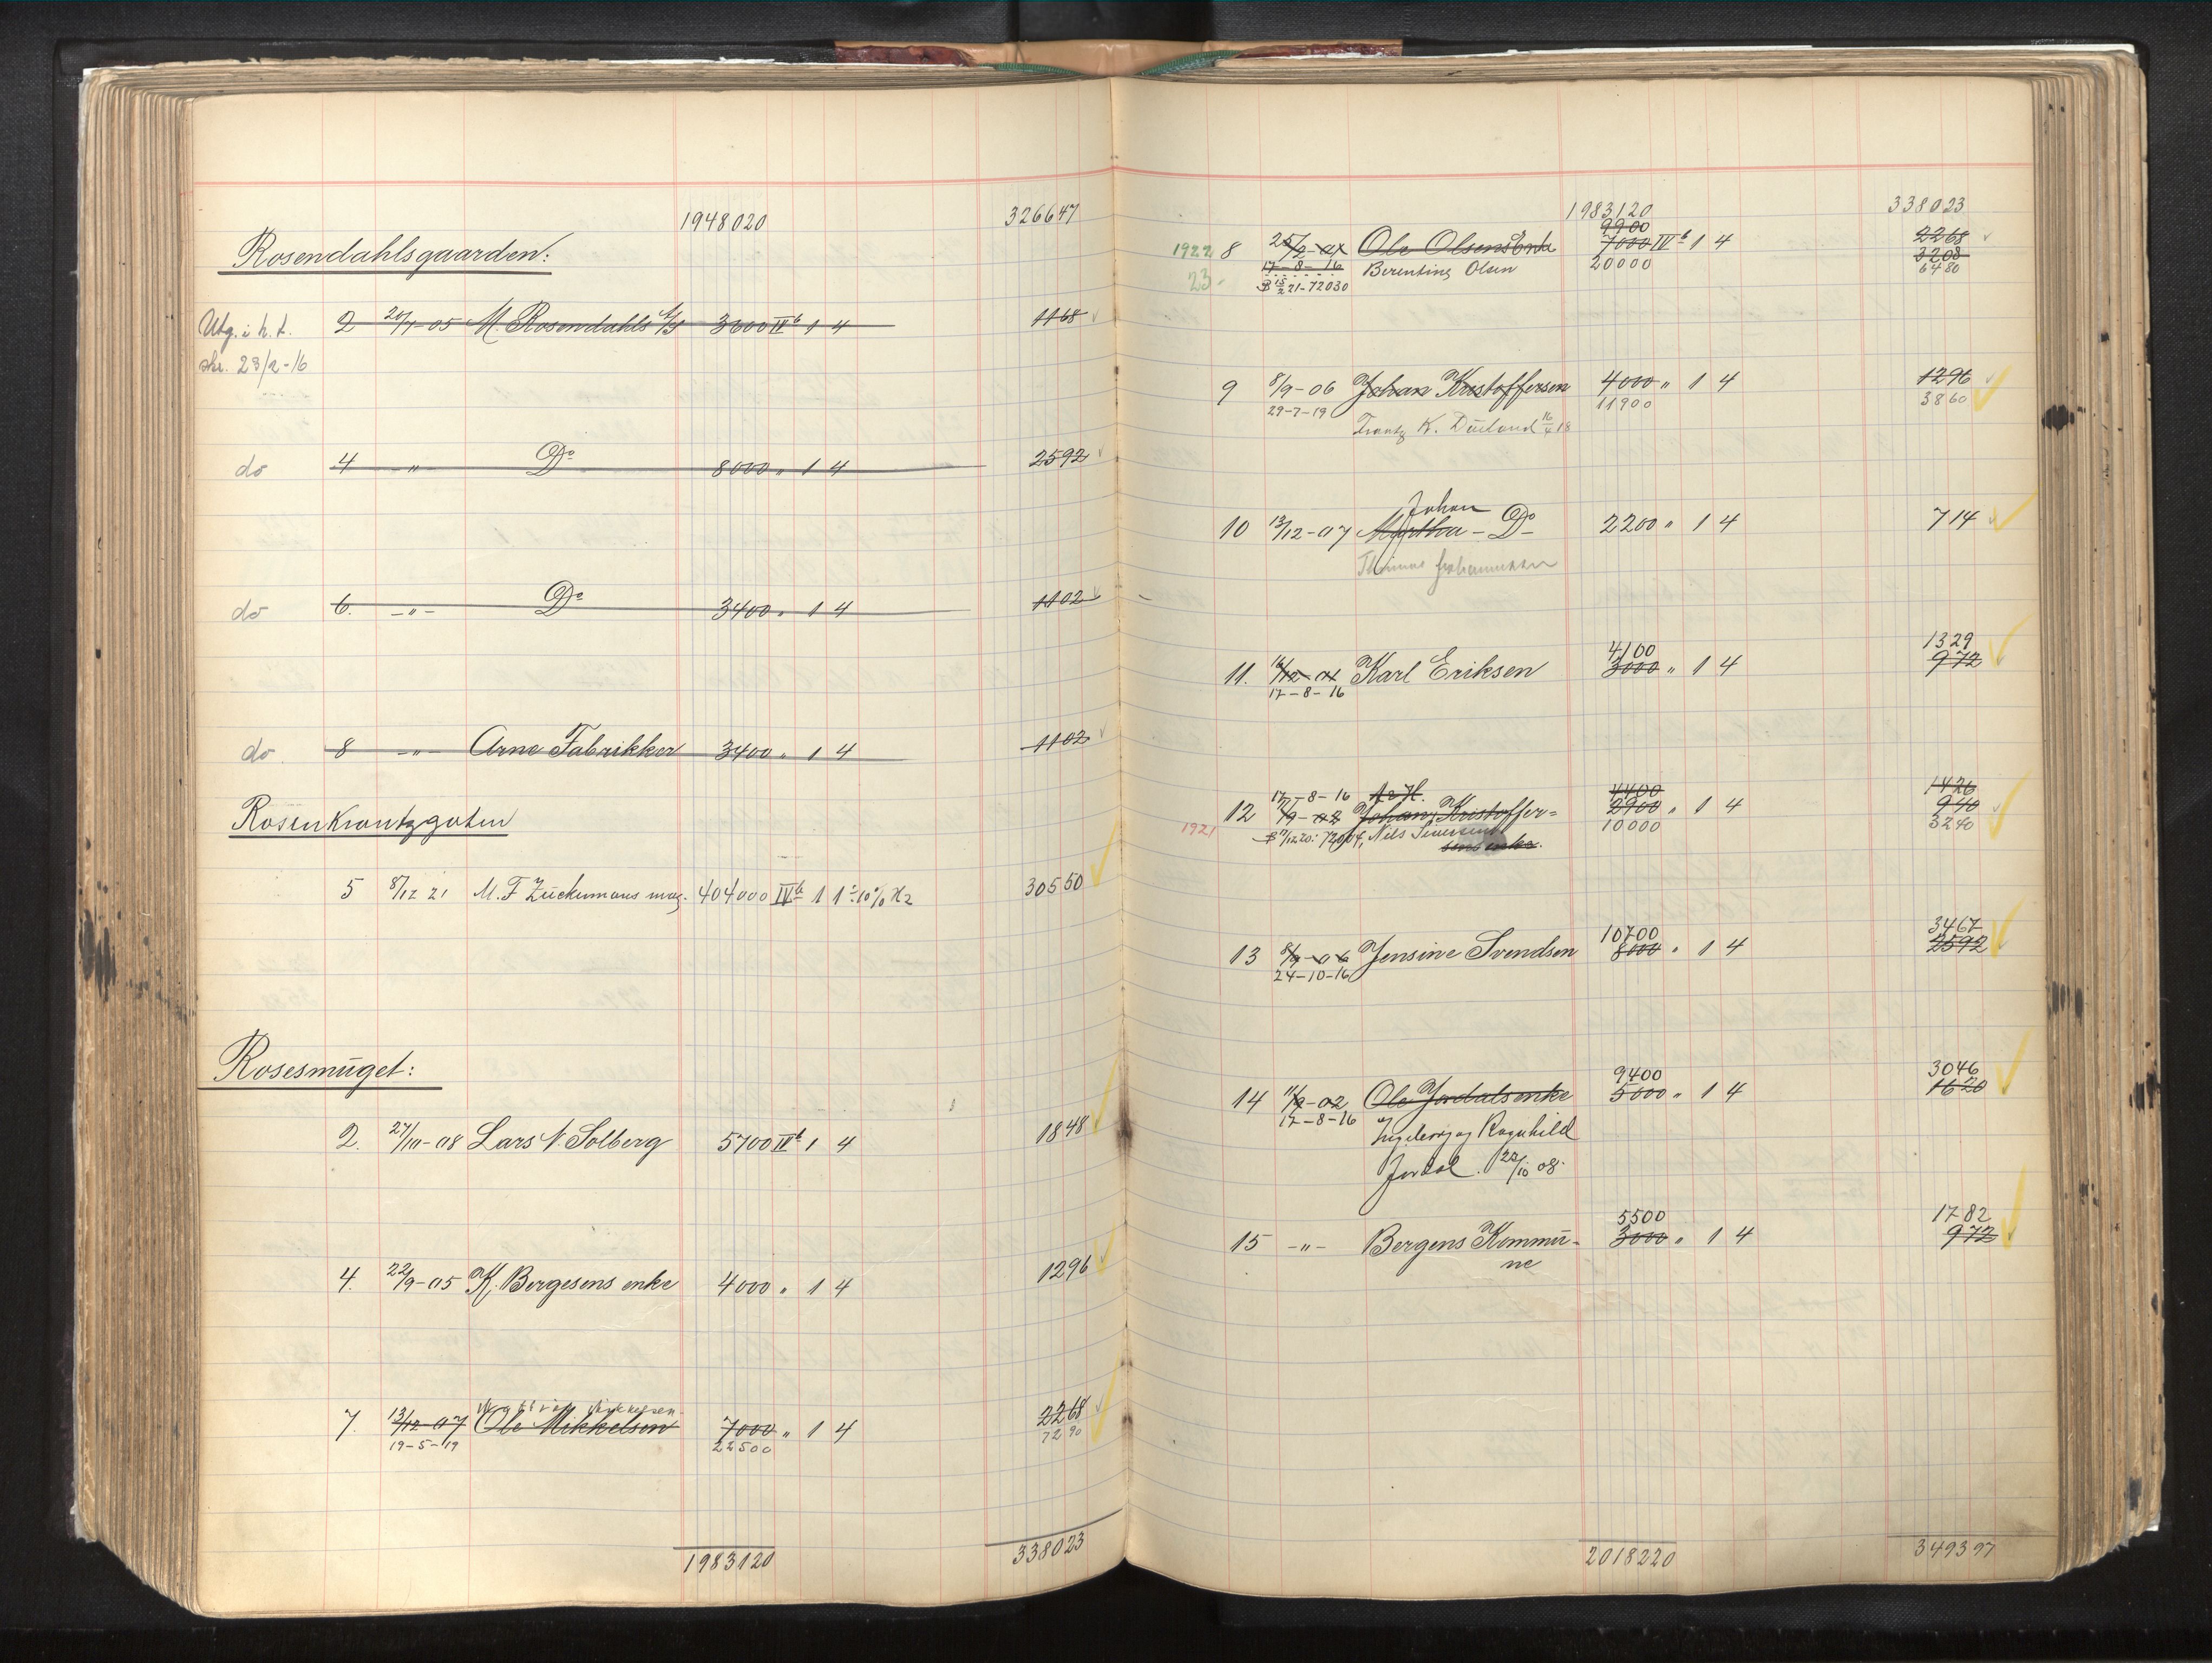 1948020 326647
Rosendahlsgaarden:
Utg. i h. t. 2 20/1-05 M. Rosendahls A/S 3600 IV b 1 4 1168
skr. 23/2-16
do 4 -"- Do 8000 " 1 4 2592
do 6. -"- Do 3400 " 1 4 1102
do 8 -"- Arne Fabrikker 3400 " 1 4 1102
Rosenkrantzgaten
5 8/12 21 M. F. Zückumans mag. 404000 IV b 1 1 ÷ 10% H2 30550
Rosesmüget:
2. 27/10-08 Lars N. Solberg 5700 IV b 1 4 1848
4. 22/9-05 K. Bergesens enke 4000 " 1 4 1296
Mikkelsen
7. 13/12-07 Ole Mikkelsen 7000 " 1 4 2268
19-5-19 22500 7290
1983120 338023
1983120 338023
9900
1922 8 25/2-01 Ole Olsens Enke 7000 IV b 1 4 2268
23- 17-8-16 Berenting Olsen 20000 3208
B 15/2 21-72030 6480
9 8/9-06 Johan Kristoffersen 4000 " 1 4 1296
29-7-19 11900 3860
Frantz K. 16/4 18
Johan
10 13/12-07 Martha - Do - 2200 " 1 4 714
Johannessen
4100 1329
11. 16/12-01 Karl Eriksen 3000 " 1 4 972
17-8-16
17-8-16 4400 1426
12 2/9-02 Johan Kristoffer= 2900 " 1 4 940
1921 B 17/12 20: 72004, Nils Seversen 10000 3240
sens enke.
10700 3467
13 8/9-06 Jensine Svendsen 8000 " 1 4 2592
24-10-16
9400 3046
14 11/9-02 Ole Jordals enke 5000 " 1 4 1620
17-8-16 Ingeborg og Ragnhild
Jordal. 22/10 08.
5500 1782
15 -"- Bergens Kommü- 3000 " 1 4 972
ne
2018220 349397